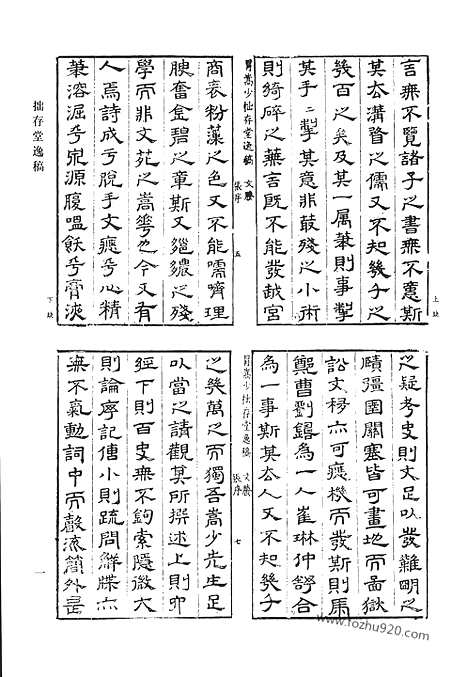 上缺
言無不覽諸子之書無不憙斯
其太溝瞀之儒又不知幾千之
幾百之矣及其一屬筆則事掣
其手二掣其意非菆殘之小術
則綺碎之蕪言既不能發越宮
冒嵩少拙存堂逸稿 文勝 張序 五
商表粉藻之色又不能嚅嚌理
腴奮金碧之章斯又之殘
學而非文苑之嵩華也今又有
人焉詩成乎脫手文癒乎心精
筆溶漚乎泉源腹嗢飫乎膏浹
下缺
之疑考史則文足以發難明之
賾彊圉關塞皆可畫地而啚獄
訟文移亦可應機而發斯則馬
鄭曹劉鎔為一人崔琳仲舒合
為一事斯其太人又不知幾千
冒嵩少拙存堂逸稿 文勝 張序 七
之幾萬之而獨吾嵩少先生足
以當之請觀其所撰述上則六
經下則百史無不鉤索隱微大
則論序記傳小則疏問解牒亦
無不氣勳詞中而聲流簡外是
拙存堂逸稿
一
www.fozhu920.com